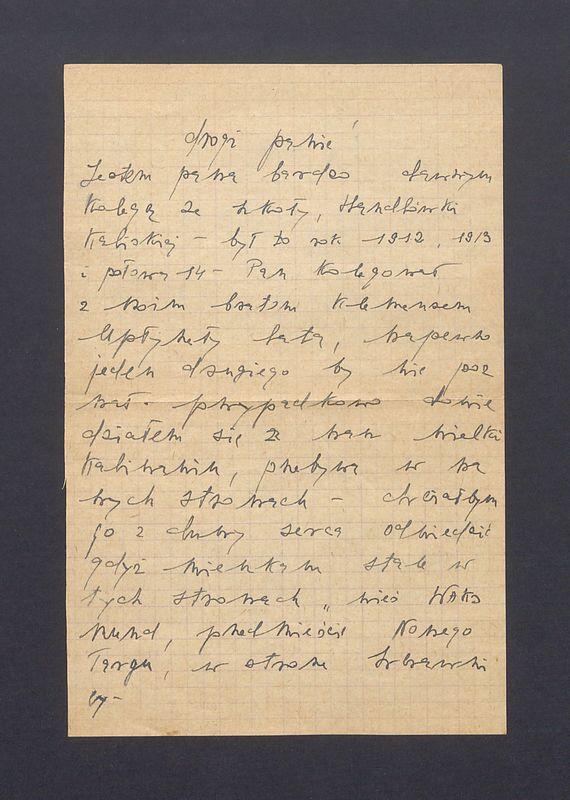 drogi panie!
Jestem pana bardzo dawnym
kolegą ze szkoły, Handlówki
Kaliskiej – był to rok 1912, 1913
i połowa 14 – Pan kolegował
z moim bratem Klemensem
Upłynęły lata, napewno
jeden drugiego by nie poz
nał. przypadkowo dowie
działem się że nasz wielki
Kaliszanin, przebywa w na
szych stronach – chciałbym
go z duszy serca odwiedzić
gdyż mieszkam stale w
tych stronach „ wieś Waks
mund, przedmieście Nowego
Targu, w stronę